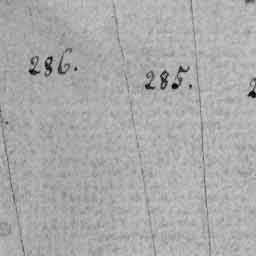 286.
285.